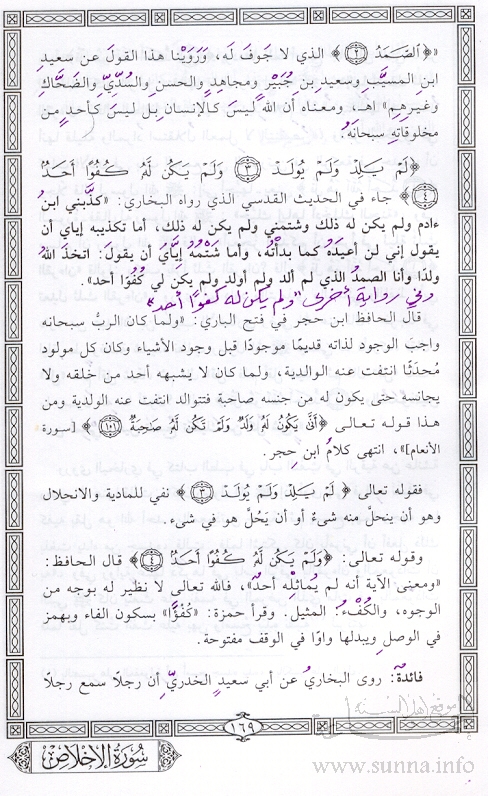 «﴿الصَّمَدُ ٢﴾ الذي لا جَوفَ لَه، وَرَوَيْنا هذا القولَ عن سعيدِ
ابنِ المسيَّبِ وسعيدِ بنِ جُبَيْرٍ ومجاهدٍ والحسنِ والسُدّيِّ والضَحَّاكِ
وغيرِهِم» اهـ، ومعناه أن اللهَ ليسَ كالإنسانِ بل ليسَ كأحدٍ من
مخلوقاتِهِ سبحانَهُ.
﴿لَمْ يَلِدْ وَلَمْ يُولَدْ ٣ وَلَمْ يَكُن لَّهُ كُفُوًا أَحَدٌ
٤﴾ جاء في الحديث القدسي الذي رواه البخاري: «كذَّبني ابنُ
ءادم ولم يكن له ذلك وشتمني ولم يكن له ذلك، أما تكذيبه إياي أن
يقول إني لن أعيدَه كما بدأتُه، وأما شَتْمُهُ إيَّايَ أن يقولَ: اتخذَ اللهُ
ولدًا وأنا الصمدُ الذي لم ألد ولم أولد ولم يكن لي كُفُوًا أحد».
وفي رواية أخرى "ولم يكن له كفوًا أحد"
قال الحافظ ابن حجر في فتح الباري: «ولما كان الربُّ سبحانه
واجبَ الوجود لذاته قديمًا موجودًا قبل وجود الأشياء وكان كل مولود
مُحدَثًا انتفت عنه الوالدية، ولما كان لا يشبهه أحد من خلقه ولا
يجانسه حتى يكون له من جنسه صاحبة فتتوالد انتفت عنه الولدية ومن
هذا قوله تعالى ﴿أَنَّى يَكُونُ لَهُ وَلَدٌ وَلَمْ تَكُن لَّهُ صَاحِبَةٌ ١٠١﴾ [سورة
الأنعام]»، انتهى كلامُ ابنِ حجرٍ.
فقوله تعالى ﴿لَمْ يَلِدْ وَلَمْ يُولَدْ ٣﴾ نفي للمادية والانحلال
وهو أن ينحلَّ منه شىءٌ أو أن يَحُلَّ هو في شىء.
وقوله تعالى: ﴿وَلَمْ يَكُن لَّهُ كُفُوًا أَحَدٌ ٤﴾ قال الحافظ:
«ومعنى الآية أنه لم يُماثلْه أحدٌ»، فالله تعالى لا نظير له بوجه من
الوجوه، والكُفْءُ: المثيل. وقرأ حمزة: «كُفْؤًا» بسكون الفاء وبهمز
في الوصلِ ويبدلها واوًا في الوقف مفتوحة.
فائدةٌ: روى البخاريُّ عن أبي سعيدٍ الخدريِّ أن رجلًا سمع رجلًا
١٦٩
موقع أهل السنة
سُورَةُ الإِخْلَاصِ
www.sunna.info